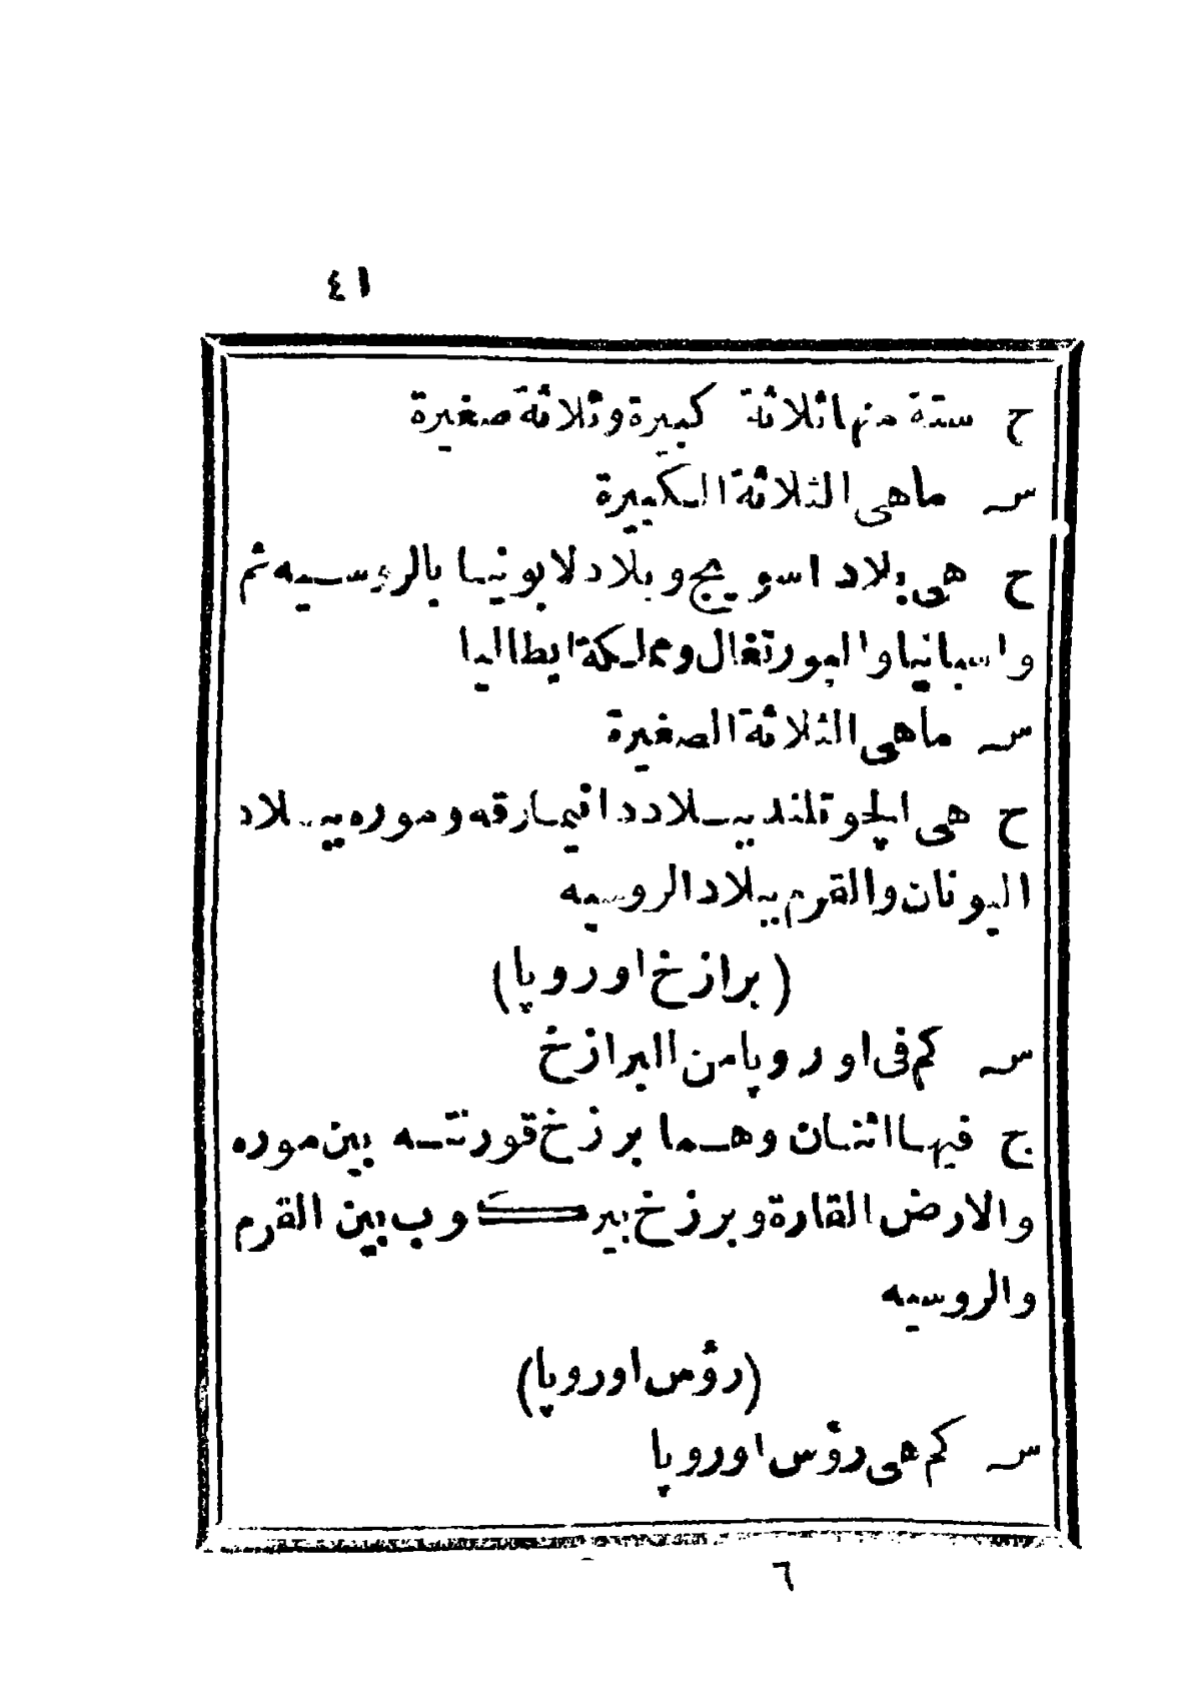 ٤١
ج ستة منها ثلاثة كبيرة وثلاثة صغيرة
س ماهى الثلاثة الكبيرة
ج هى بلاد اسويج وبلاد لابونيا بالروسيه ثم
واسبانيا والبورتغال ومملكة ايطاليا
س ماهى الثلاثة الصغيرة
ج هى الجوتلند ببلاد دانيمارقه وموره ببلاد
اليونان والقرم ببلاد الروسيه
(برازخ اوروپا)
س كم فى اوروپا من البرازخ
ج فيها اثنان وهما برزخ قورنته بين موره
والارض القارة وبرزخ بيركوب بين القرم
والروسيه
(رؤس اوروپا)
س كم هى رؤس اوروپا
٦